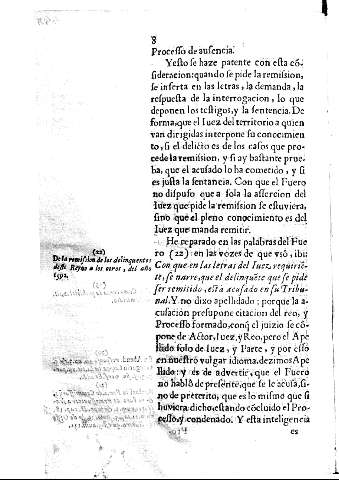 8
Processo de ausencia.
Y esto se haze patente con esta cõ-
sideracion: quando se pide la remission,
se inserta en las letras, la demanda, la
respuesta de la interrogacion, lo que
deponen los testigos, y la sentencia. De
forma, que el Iuez del territorio a quien
van dirigidas interpone su conocimiẽ-
to, si el delicto es de los casos que pro-
cede la remission, y si ay bastante prue-
ba, que el acusado lo ha cometido, y si
es justa la sentancia. Con que el Fuero
no dispuso que a sola la assercion del
Iuez que pide la remission se estuviera,
sino que el pleno conocimiento es del
Iuez que manda remitir.
He reparado en las palabras del Fue
ro (22) en las vozes de que vsò, ibi
(22)
De la remission de los delinquentes
deste Reyno a los otros, del año
1592.
Con que en las letras del Iuez, requirien-
te, se narre, que el delinquẽte que se pide
ser remitido, està acusado en su Tribu-
nal. Y no dixo apellidado; porque la a-
cusacion presupone citacion del reo, y
Processo formado, conq̃ el juizio se cõ-
pone de Actor, Iuez, y Reo, pero el Ape
llido solo de Iuez, y Parte, y por esso
en nuestro vulgar idioma, dezimos Ape
llido: y es de advertir, que el Fuero
no hablò de presente, que se le acusa, si-
no de preterito, que es lo mismo que si
huviera dicho, estando cõcluido el Pro-
cesso, y condenado. Y esta inteligencia
es